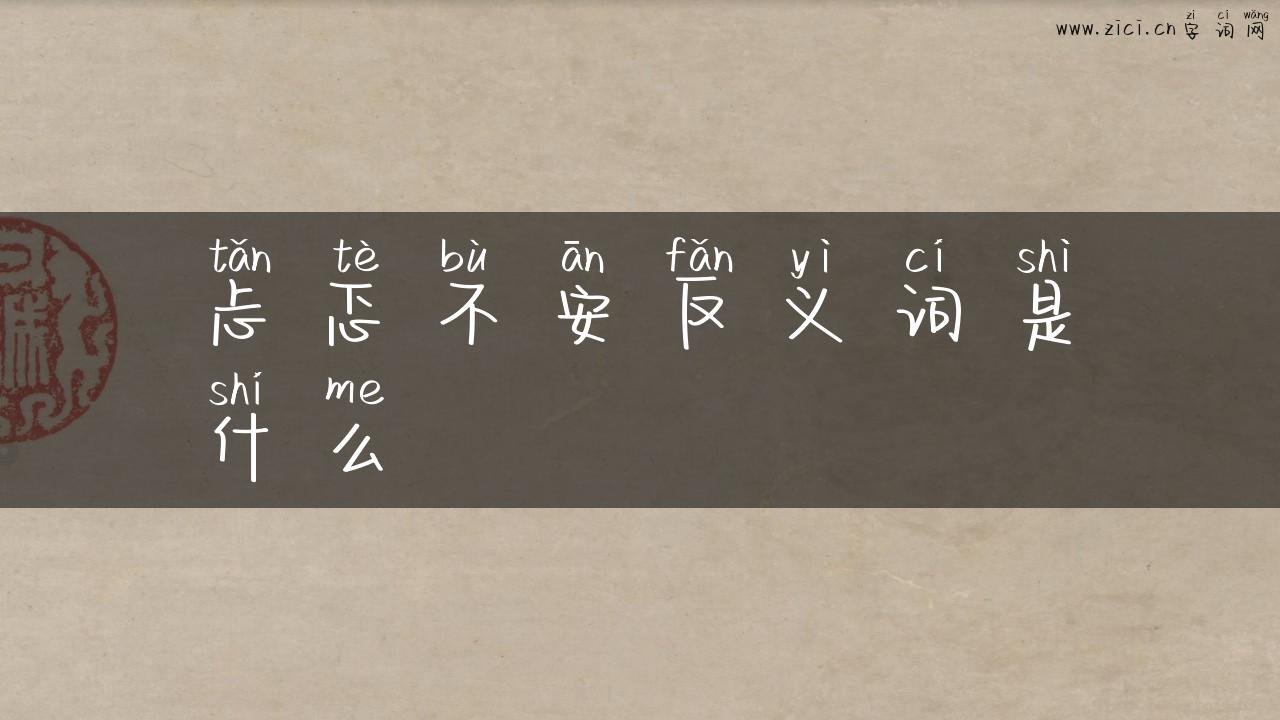 www.zici.cn
zì cí wǎng
字词网
tǎn tè bù ān fǎn yì cí shì
忐忑不安反义词是
shí me
什么